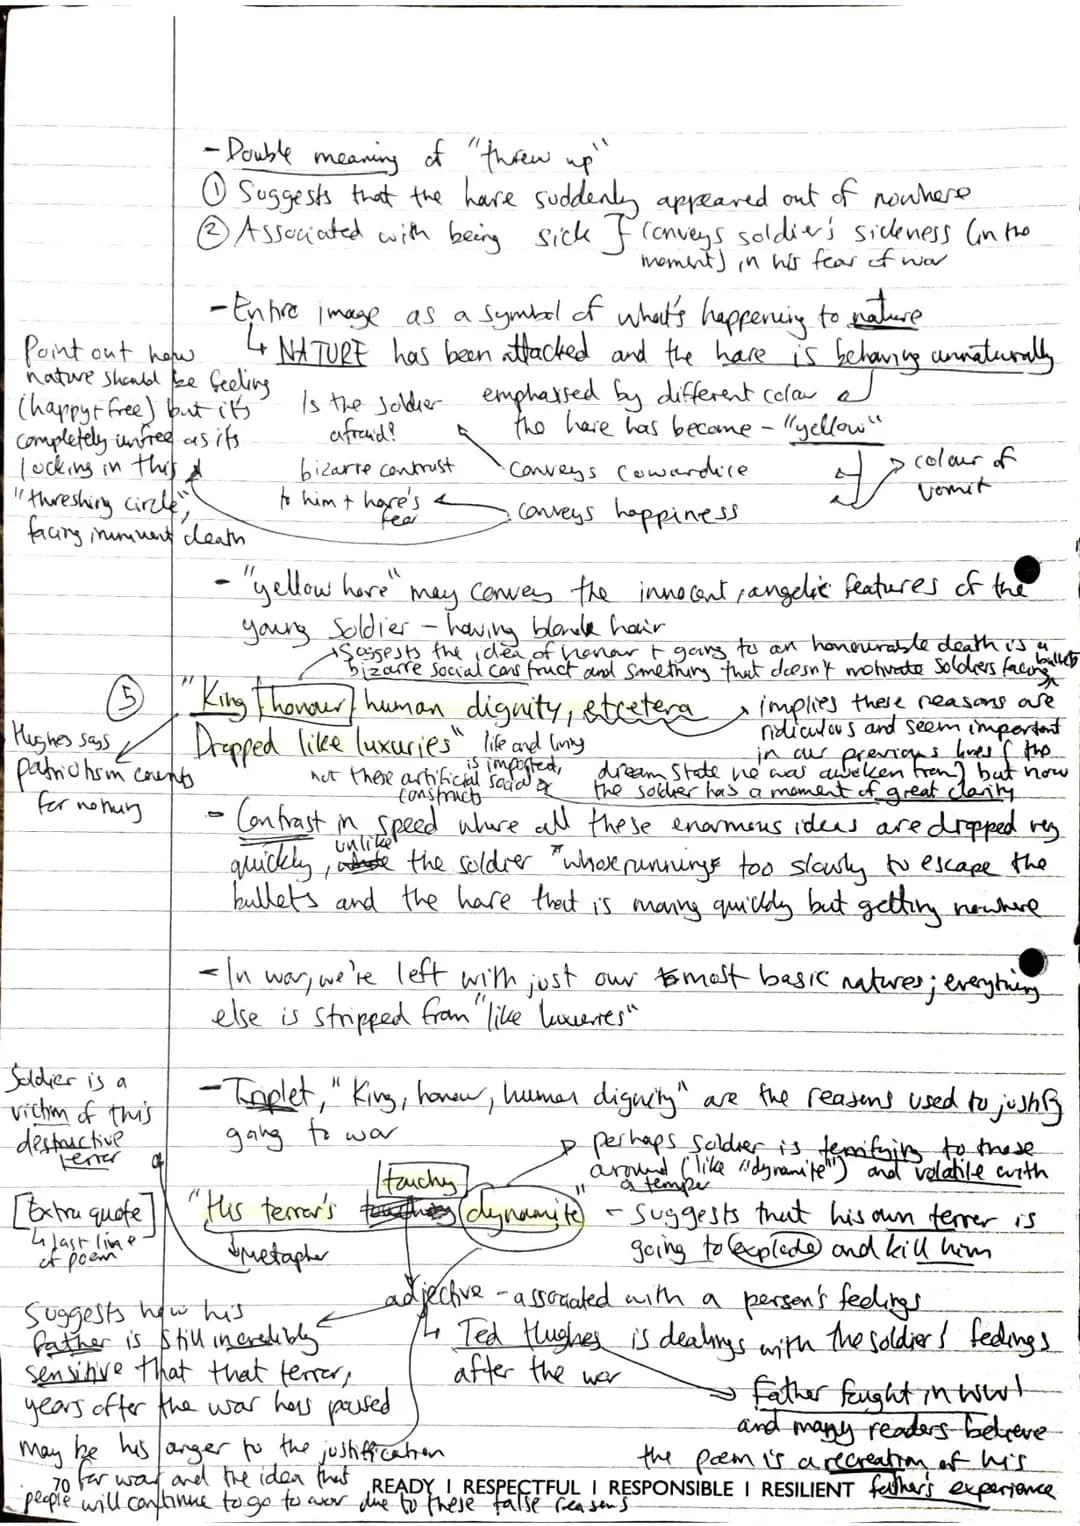 - Double meaning of "threw up"
① Suggests that the hare suddenly appeared out of nowhere
② Associated with being sick } Conveys soldier's sickness (in the
moment) in his fear of war
- Entire image as a symbol of what's happening to nature
↳ NATURE has been attacked and the hare is behaving unnaturally
emphasised by different colour
the hare has become - "yellow"
Point out how
nature should be feeling
(happy + free) but it's
completely unfree as its
locking in this
"threshing circle",
facing imminent death
Is the soldier
afraid?
bizarre contrast
to him + hare's
fear
Conveys cowardice
conveys happiness
colour of
vomit
- "yellow hare" may convey the innocent, angelic features of the
young soldier - having blonde hair
Suggests the idea of honour + going to an honourable death is a
bizarre social construct and something that doesn't motivate soldiers facing bullets
⑤ "King honour human dignity, etcetera
Dropped like luxuries"
implies these reasons are
ridiculous and seem important
in our previous lives ( the
dream state he was awoken from) but now
the soldier has a moment of great clarity
life and living
is important,
not these artificial social
constructs
Hughes says
patriotism counts
for nothing
- Contrast in speed where all these enormous ideas are dropped very
quickly, unlike the soldier whose running too slowly to escape the
bullets and the hare that is moving quickly but getting nowhere
- In war, we're left with just our most basic natures; everything
else is stripped from "like luxuries"
- Triplet, "King, honour, human dignity" are the reasons used to justify
going to war
Soldier is a
victim of this
destructive
terror
perhaps soldier is terrifying to those
around (like "dynamite") and volatile with
a temper
[Extra quote]
↳ last line
of poem
"His terror's touchy dynamite" - suggests that his own terror is
going to explode and kill him
metaphor
adjective - associated with a person's feelings
↳ Ted Hughes is dealings with the soldiers' feelings
after the war
Father fought in WW1
and many readers believe
the poem is a recreation of his
father's experience
Suggests how his
father is still incredibly
sensitive that that terror,
years after the war has passed
may be his anger to the justification
for war and the idea that
people will continue to go to war due to these false reasons
70
READY I RESPECTFUL I RESPONSIBLE I RESILIENT